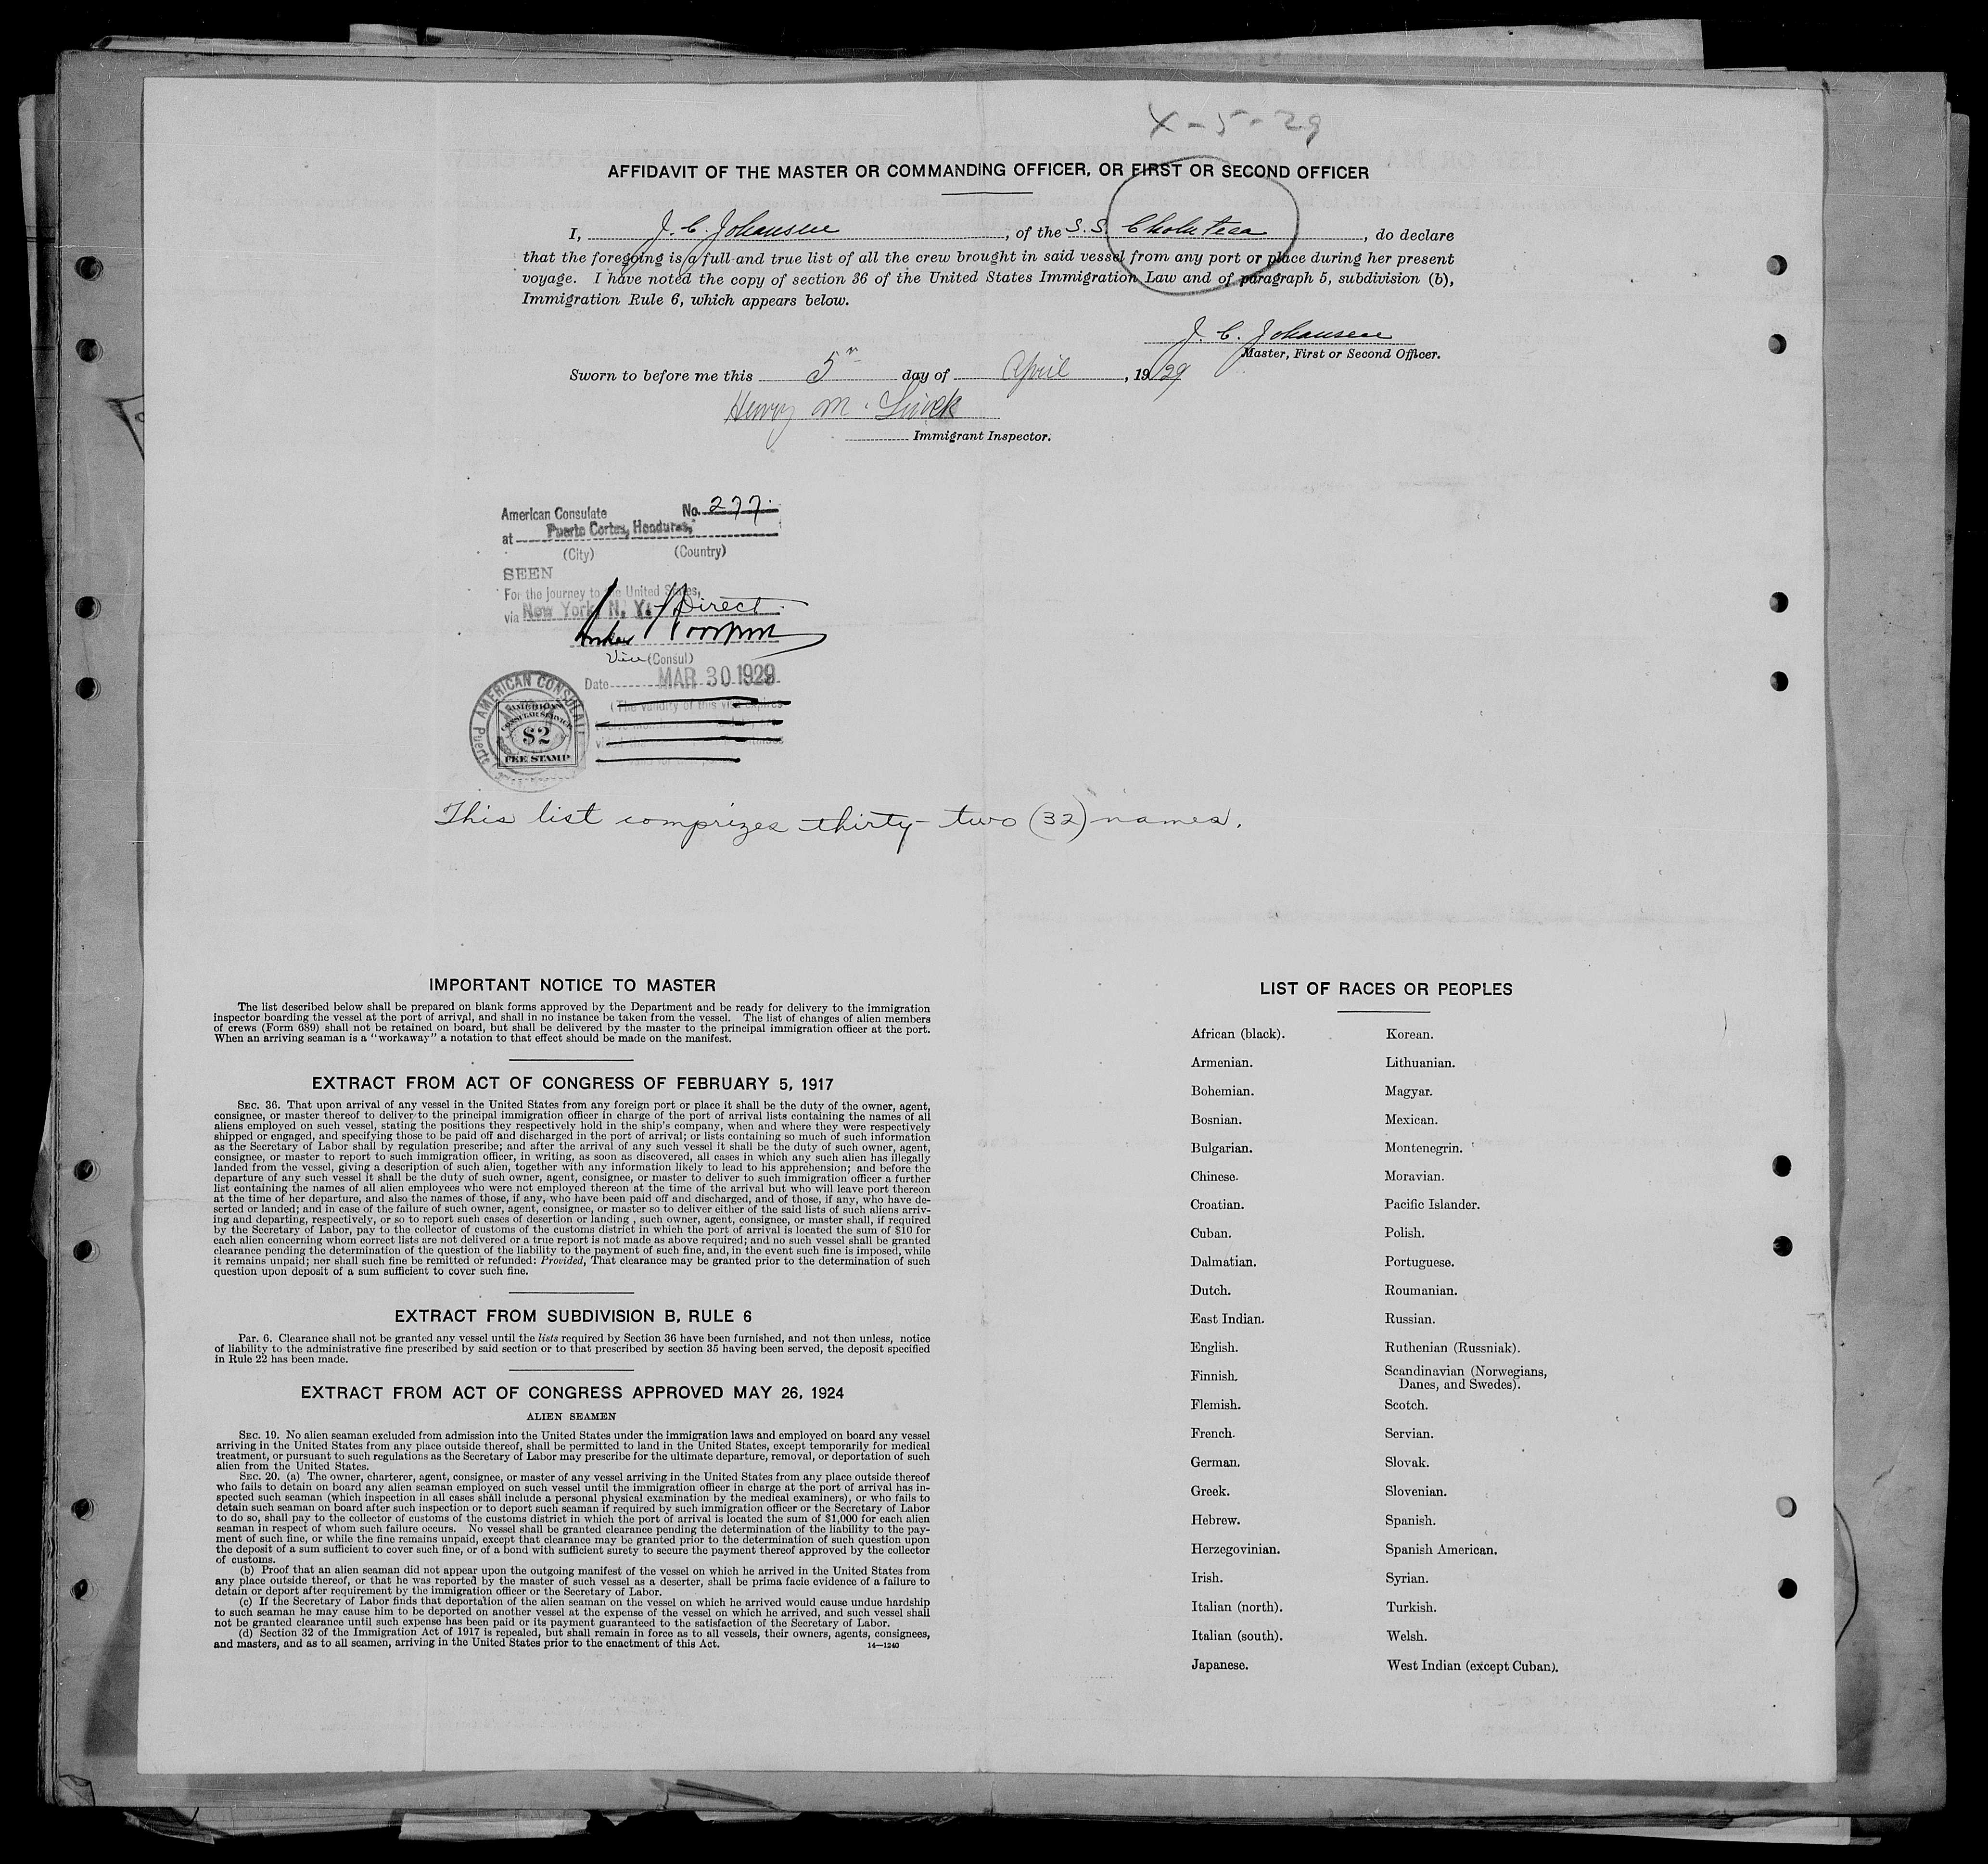 X-5-29
AFFIDAVIT OF THE MASTER OR COMMANDING OFFICER, OR FIRST OR SECOND OFFICER
I, J. C. Johansen, of the S.S. Choluteca, do declare
that the foregoing is a full and true list of all the crew brought in said vessel from any port or place during her present
voyage. I have noted the copy of section 36 of the United States Immigration Law and of paragraph 5, subdivision (b),
Immigration Rule 6, which appears below.
J. C. Johansen
Master, First or Second Officer.
Sworn to before me this 5th day of April, 1929
Henry M.
Immigrant Inspector.
American Consulate No. 277.
at Puerto Cortes, Honduras,
(City) (Country)
SEEN
For the journey to the United States,
via New York, N. Y. Direct
Vice (Consul)
Date MAR 30 1929
(The validity of this visa expires
AMERICAN CONSULATE
Puerto
AMERICAN
CONSULAR SERVICE
$2
FEE STAMP
This list comprizes thirty-two (32) names.
IMPORTANT NOTICE TO MASTER
The list described below shall be prepared on blank forms approved by the Department and be ready for delivery to the immigration
inspector boarding the vessel at the port of arrival, and shall in no instance be taken from the vessel. The list of changes of alien members
of crews (Form 689) shall not be retained on board, but shall be delivered by the master to the principal immigration officer at the port.
When an arriving seaman is a "workaway" a notation to that effect should be made on the manifest.
EXTRACT FROM ACT OF CONGRESS OF FEBRUARY 5, 1917
SEC. 36. That upon arrival of any vessel in the United States from any foreign port or place it shall be the duty of the owner, agent,
consignee, or master thereof to deliver to the principal immigration officer in charge of the port of arrival lists containing the names of all
aliens employed on such vessel, stating the positions they respectively hold in the ship's company, when and where they were respectively
shipped or engaged, and specifying those to be paid off and discharged in the port of arrival; or lists containing so much of such information
as the Secretary of Labor shall by regulation prescribe; and after the arrival of any such vessel it shall be the duty of such owner, agent,
consignee, or master to report to such immigration officer, in writing, as soon as discovered, all cases in which any such alien has illegally
landed from the vessel, giving a description of such alien, together with any information likely to lead to his apprehension; and before the
departure of any such vessel it shall be the duty of such owner, agent, consignee, or master to deliver to such immigration officer a further
list containing the names of all alien employees who were not employed thereon at the time of the arrival but who will leave port thereon
at the time of her departure, and also the names of those, if any, who have been paid off and discharged, and of those, if any, who have de-
serted or landed; and in case of the failure of such owner, agent, consignee, or master so to deliver either of the said lists of such aliens arriv-
ing and departing, respectively, or so to report such cases of desertion or landing , such owner, agent, consignee, or master shall, if required
by the Secretary of Labor, pay to the collector of customs of the customs district in which the port of arrival is located the sum of $10 for
each alien concerning whom correct lists are not delivered or a true report is not made as above required; and no such vessel shall be granted
clearance pending the determination of the question of the liability to the payment of such fine, and, in the event such fine is imposed, while
it remains unpaid; nor shall such fine be remitted or refunded: Provided, That clearance may be granted prior to the determination of such
question upon deposit of a sum sufficient to cover such fine.
EXTRACT FROM SUBDIVISION B, RULE 6
Par. 6. Clearance shall not be granted any vessel until the lists required by Section 36 have been furnished, and not then unless, notice
of liability to the administrative fine prescribed by said section or to that prescribed by section 35 having been served, the deposit specified
in Rule 22 has been made.
EXTRACT FROM ACT OF CONGRESS APPROVED MAY 26, 1924
ALIEN SEAMEN
SEC. 19. No alien seaman excluded from admission into the United States under the immigration laws and employed on board any vessel
arriving in the United States from any place outside thereof, shall be permitted to land in the United States, except temporarily for medical
treatment, or pursuant to such regulations as the Secretary of Labor may prescribe for the ultimate departure, removal, or deportation of such
alien from the United States.
SEC. 20. (a) The owner, charterer, agent, consignee, or master of any vessel arriving in the United States from any place outside thereof
who fails to detain on board any alien seaman employed on such vessel until the immigration officer in charge at the port of arrival has in-
spected such seaman (which inspection in all cases shall include a personal physical examination by the medical examiners), or who fails to
detain such seaman on board after such inspection or to deport such seaman if required by such immigration officer or the Secretary of Labor
to do so, shall pay to the collector of customs of the customs district in which the port of arrival is located the sum of $1,000 for each alien
seaman in respect of whom such failure occurs. No vessel shall be granted clearance pending the determination of the liability to the pay-
ment of such fine, or while the fine remains unpaid, except that clearance may be granted prior to the determination of such question upon
the deposit of a sum sufficient to cover such fine, or of a bond with sufficient surety to secure the payment thereof approved by the collector
of customs.
(b) Proof that an alien seaman did not appear upon the outgoing manifest of the vessel on which he arrived in the United States from
any place outside thereof, or that he was reported by the master of such vessel as a deserter, shall be prima facie evidence of a failure to
detain or deport after requirement by the immigration officer or the Secretary of Labor.
(c) If the Secretary of Labor finds that deportation of the alien seaman on the vessel on which he arrived would cause undue hardship
to such seaman he may cause him to be deported on another vessel at the expense of the vessel on which he arrived, and such vessel shall
not be granted clearance until such expense has been paid or its payment guaranteed to the satisfaction of the Secretary of Labor.
(d) Section 32 of the Immigration Act of 1917 is repealed, but shall remain in force as to all vessels, their owners, agents, consignees,
and masters, and as to all seamen, arriving in the United States prior to the enactment of this Act. 14—1240
LIST OF RACES OR PEOPLES
African (black). Korean.
Armenian. Lithuanian.
Bohemian. Magyar.
Bosnian. Mexican.
Bulgarian. Montenegrin.
Chinese. Moravian.
Croatian. Pacific Islander.
Cuban. Polish.
Dalmatian. Portuguese.
Dutch. Roumanian.
East Indian. Russian.
English. Ruthenian (Russniak).
Finnish. Scandinavian (Norwegians,
Danes, and Swedes).
Flemish. Scotch.
French. Servian.
German. Slovak.
Greek. Slovenian.
Hebrew. Spanish.
Herzegovinian. Spanish American.
Irish. Syrian.
Italian (north). Turkish.
Italian (south). Welsh.
Japanese. West Indian (except Cuban).